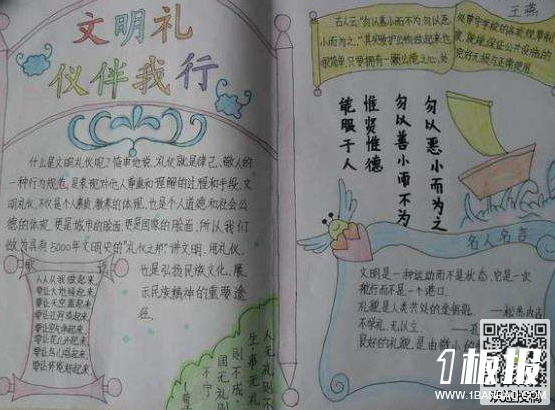 文明礼
仪伴我行
什么是文明礼仪呢？简单地说，礼仪就是律己、敬人的
一种行为规范，是表现对他人尊重和理解的过程和手段。文
明礼仪，不仅是个人素质、教养的体现，也是个人道德和社会公
德的体现。更是城市的脸面，更是国家的脸面。所以我们
做为具有5000年文明史的"礼仪之邦"讲文明、用礼仪，
也是弘扬民族文化、展
示民族精神的重要途
径。
人人从我做起来
要让大地绿起来
要让天空蓝起来
要让
要让
要让
要让鸟儿唱起来
要让环境好起来
人无礼则
生事无礼
则不成
国无礼则
不宁
王燕
古人云："勿以善小而不为，勿以恶
小而为之。"
勿以恶小而为之
勿以善小而不为
惟贤惟德
能服于人
名人名言
文明是一种运动而不是状态，它是一次
航行而不是一个港口。
礼貌是人类共处的金钥匙。——松
不学礼，无以立。——孔
良好的礼貌，是由微小的
1板报
WWW.1BANBAO.COM
欢迎投稿